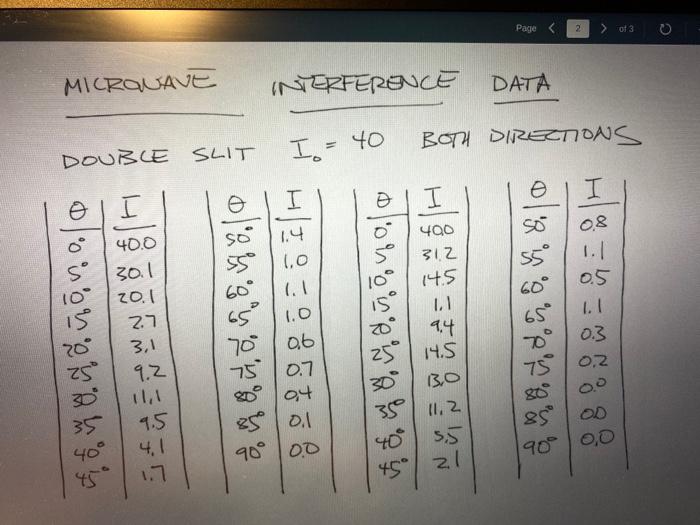 Page < 2 > of 3
MICROWAVE INTERFERENCE DATA
DOUBLE SLIT I₀ = 40 BOTH DIRECTIONS
θ I θ I θ I θ I
0° 40.0 50° 1.4 0° 40.0 50° 0.8
5° 30.1 55° 1.0 5° 31.2 55° 1.1
10° 20.1 60° 1.1 10° 14.5 60° 0.5
15° 2.7 65° 1.0 15° 1.1 65° 1.1
20° 3.1 70° 0.6 20° 9.4 70° 0.3
25° 9.2 75° 0.7 25° 14.5 75° 0.2
30° 11.1 80° 0.4 30° 13.0 80° 0.0
35° 9.5 85° 0.1 35° 11.2 85° 0.0
40° 4.1 90° 0.0 40° 5.5 90° 0.0
45° 1.7 45° 2.1